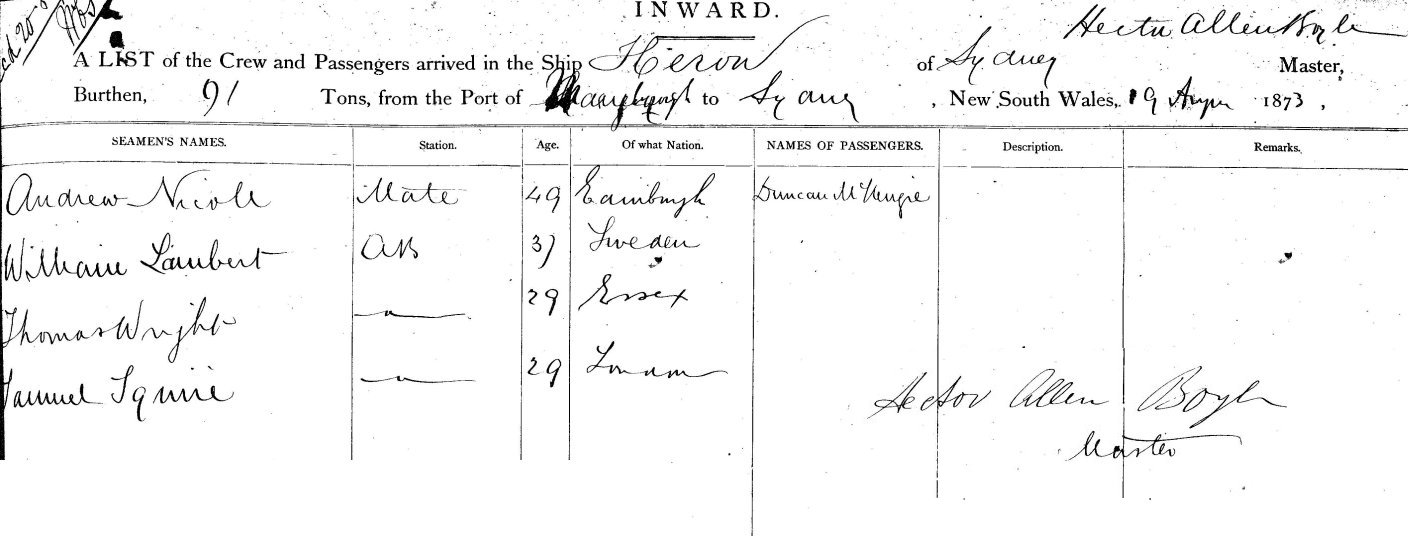 INWARD.
Hector Allen Boyle
A LIST of the Crew and Passengers arrived in the Ship Heron of Sydney Master,
Burthen, 91 Tons, from the Port of Maryborough to Sydney, New South Wales, 19 Augus 1873,
SEAMEN'S NAMES. Station. Age. Of what Nation. NAMES OF PASSENGERS. Description. Remarks.
Andrew Nicoll Mate 49 Edinburgh Duncan McKenzie
William Lambert AB 37 Sweden
Thomas Wright 29 Essex
Samuel Squire 29 London
Hector Allen Boyle
Master